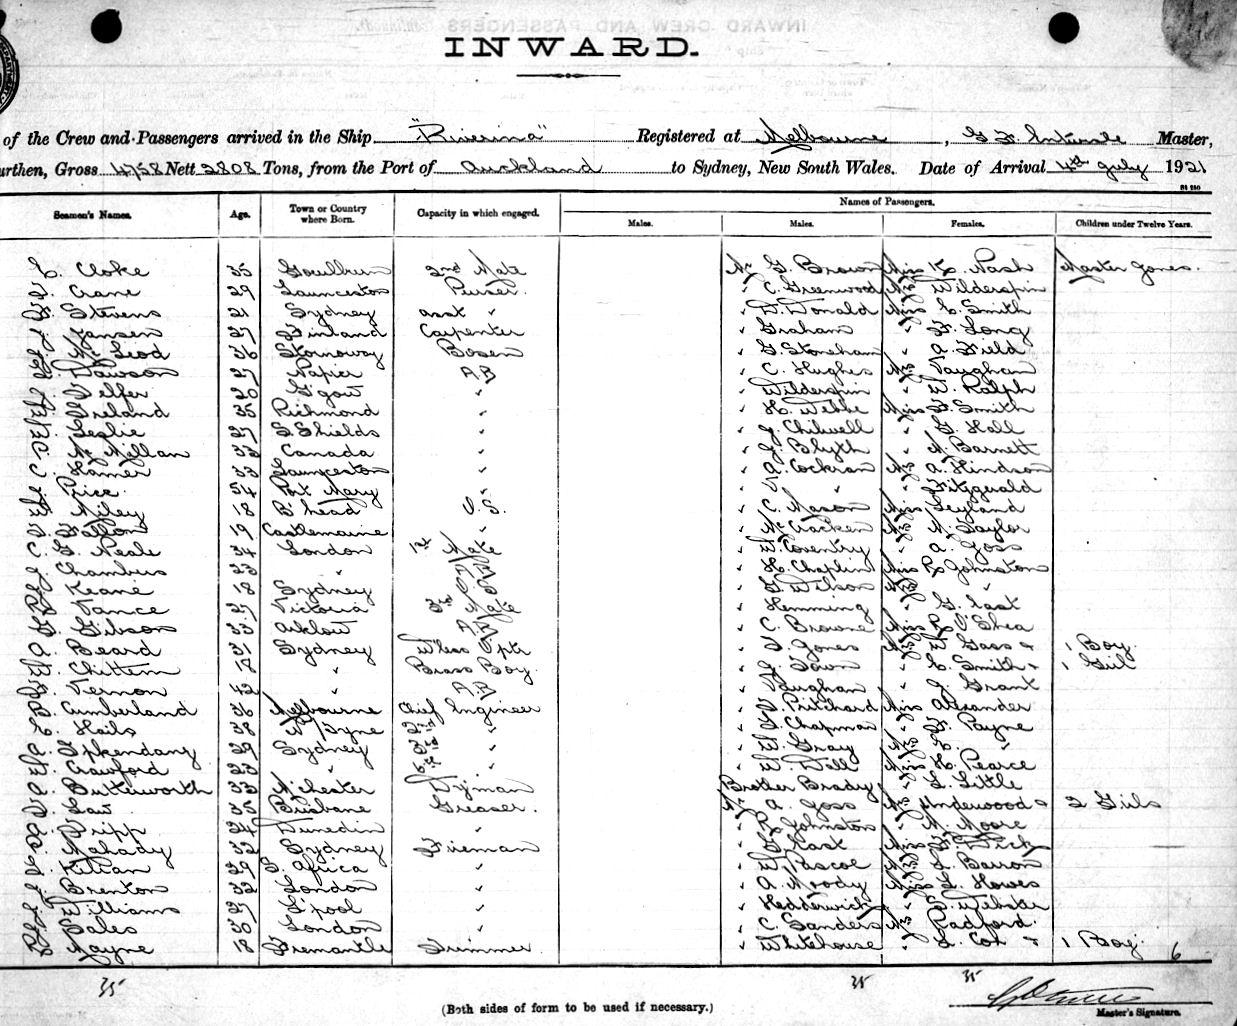 INWARD.
of the Crew and Passengers arrived in the Ship "Riverina" Registered at Melbourne, Master,
urthen, Gross 4758 Nett 2808 Tons, from the Port of Auckland to Sydney, New South Wales. Date of Arrival 4th July 1921
Names of Passengers.
Seamen's Names. Age. Town or Country where Born. Capacity in which engaged. Males. Males. Females. Children under Twelve Years.
Cloke 35 Goulburn 2nd Mate Mr G. Brown Miss Nash Master Jones.
Crane 29 Launceston Purser. " C. Greenwood Mrs Wilderspin
Stevens 21 Sydney asst " " D. Donald Miss E. Smith
Jansen 27 Finland Carpenter " Graham " Long
McLeod 36 Stornoway Bosen " G. Stonham " A. Field
Dawson 27 Napier A.B " C. Hughes Mrs Vaughan
Telfer 20 G'gow " " Wilderspin " W. Ralph
Ireland 35 Richmond " " H. Webbe Miss Smith
Leslie 27 S. Shields " " J. Chilwell " Hall
McMillan 32 Canada " " J. Blyth " Barnett
Hamer 33 Launceston " " A. Cochran Mrs A. Hindson
Price 54 Port Mary " " V. " " Fitzgerald
Riley 18 B'head O.S. " C. Mason Miss Leyland
Fallon 19 Castlemaine " " McCracken Mrs Taylor
C. G. Neale 34 London 1st Mate " W. Coventry " A. Goss
Chambers 23 " " H. Chaplin Miss R. Johnston
Keane 18 Sydney " G. Wilson "
Vance 27 Victoria 3rd Mate " Hemming " G. Last
Gibson 33 Arklow A.B " C. Browne Miss R. O'Shea
A. Beard 31 Sydney " Jones Gass " 1 Boy.
Chittem 18 " Brass Boy. " J. Down " E. Smith " 1 Girl
Vernon 42 " A.B " Vaughan " J. Grant
Cumberland 36 Melbourne Chief Engineer " Pritchard Miss Alexander
Hails 38 2nd " " Chapman " Payne
29 Sydney 3rd " " W. Gray "
Crawford 23 " " " W. Dall Miss H. Pearce
Butterworth 33 M'chester Brother Brady " L. Little
Law 35 Brisbane Greaser. Mr A. Goss Mrs Underwood " 2 Girls
Tripp 24 Dunedin " " R. Johnston " M. Moore
Mahady 32 Sydney Fireman " G. Last Miss Dick
Kilian 29 S. Africa " " W. Pascoe " Barron
Brenton 32 London " " A. Moody Howes
Williams 27 L'pool " " Hedderwick " Webster
Bales 30 London " " C. Sanders Mrs Radford
Kayne 18 Fremantle Trimmer " Whitehouse " L. Cox " 1 Boy 6
35 35 35
(Both sides of form to be used if necessary.)
Master's Signature.